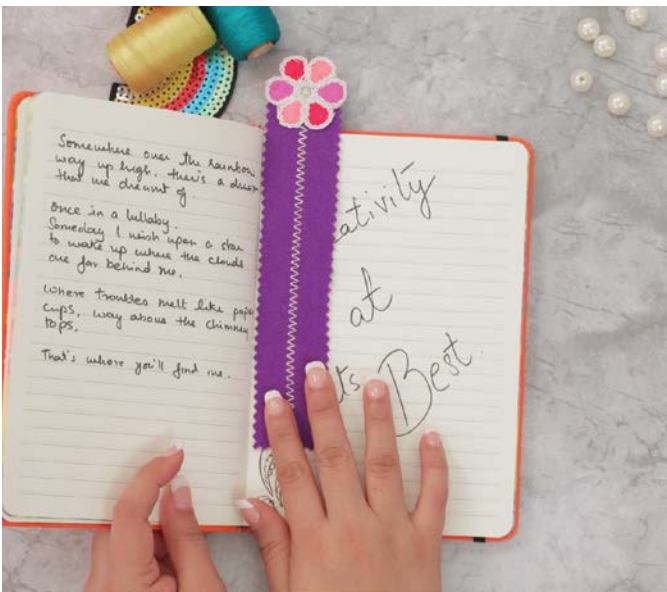 Somewhere over the rainbow
way up high, there's a
that we dreamt of.
once in a lullaby.
Someday I wish upon a star
to wake up where the clouds
are far behind me.
Where troubles melt like
cups, way above the chimney
tops.
That's where you'll find me.
ativity
at
ts Best.